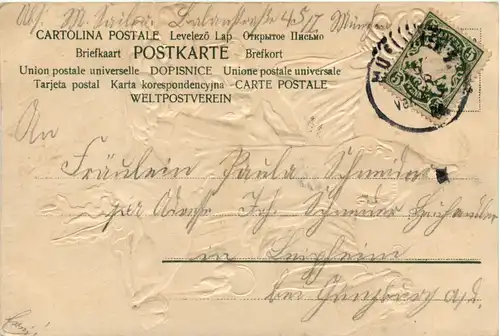 Abs. M. Sailer, Balanstraße 45/I München
CARTOLINA POSTALE Levelező Lap Открытое Письмо
Briefkaart POSTKARTE Brefkort
Union postale universelle DOPISNICE Unione postale universale
Tarjeta postal Karta korespondencyjna CARTE POSTALE
WELTPOSTVEREIN
An
Fräulein Paula Schneider
per Adresse Joh. Schneider
in Leipheim
bei Günzburg a/d.